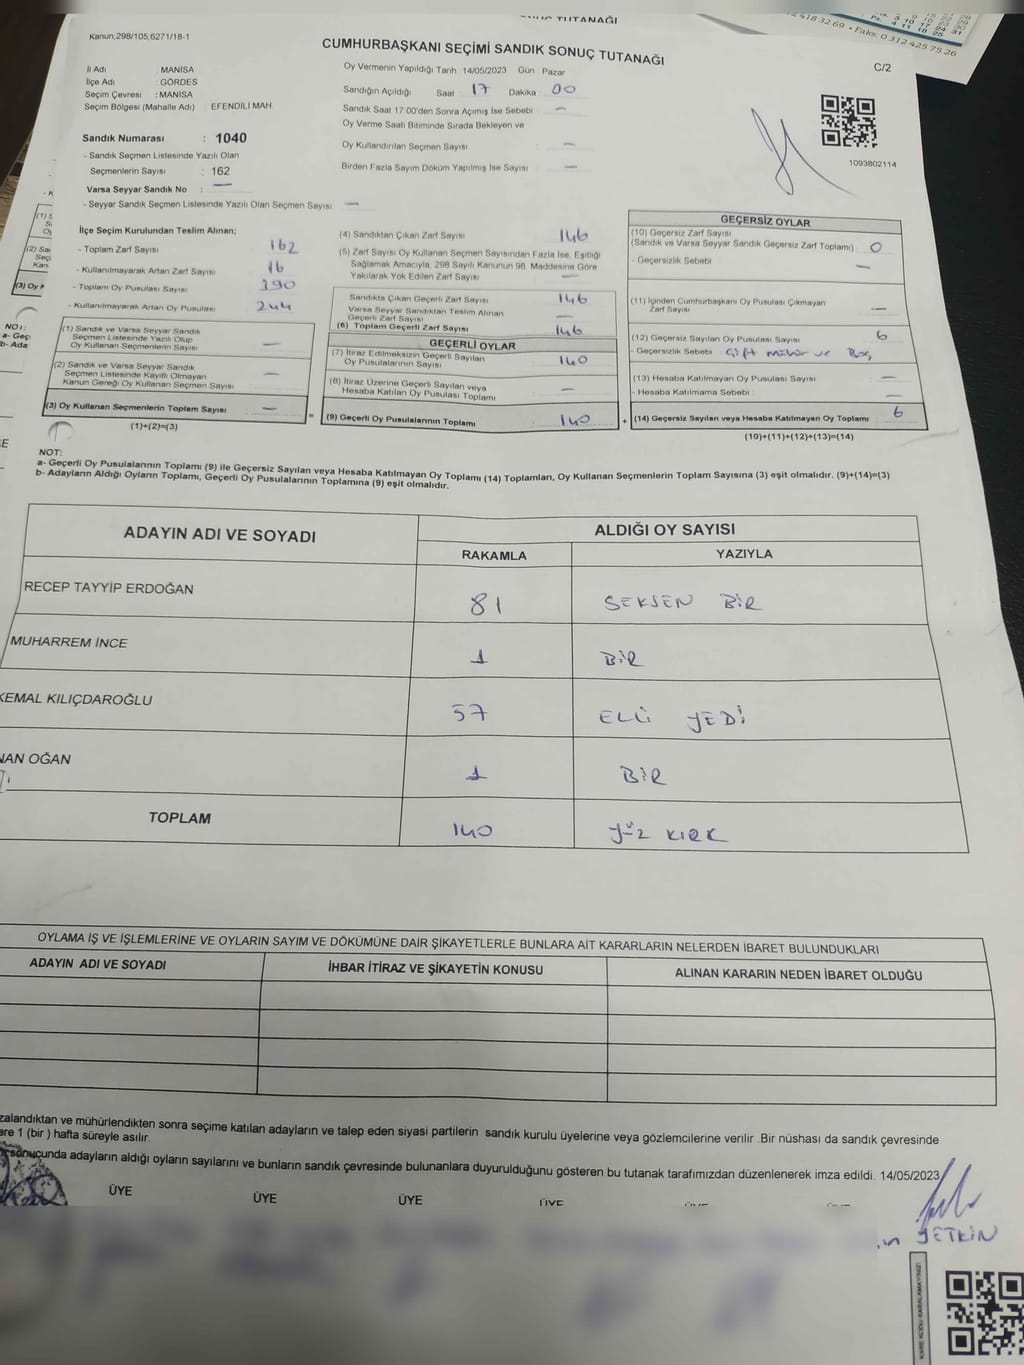 TUTANAĞI
418 32 69 • Faks: 0 312 425 75 26
Kanun:298/105,6271/18-1
CUMHURBAŞKANI SEÇİMİ SANDIK SONUÇ TUTANAĞI
C/2
İl Adı : MANİSA
İlçe Adı : GÖRDES
Seçim Çevresi : MANİSA
Seçim Bölgesi (Mahalle Adı) : EFENDİLİ MAH.
Oy Vermenin Yapıldığı Tarih 14/05/2023 Gün Pazar
Sandığın Açıldığı Saat : 17 Dakika : 00
Sandık Saat 17:00'den Sonra Açımış İse Sebebi : —
Oy Verme Saati Bitiminde Sırada Bekleyen ve
Oy Kullandırılan Seçmen Sayısı : —
Birden Fazla Sayım Döküm Yapılmış İse Sayısı : —
1093802114
Sandık Numarası : 1040
- Sandık Seçmen Listesinde Yazılı Olan
Seçmenlerin Sayısı : 162
Varsa Seyyar Sandık No : —
- Seyyar Sandık Seçmen Listesinde Yazılı Olan Seçmen Sayısı : —
İlçe Seçim Kurulundan Teslim Alınan;
- Toplam Zarf Sayısı : 162
- Kullanılmayarak Artan Zarf Sayısı : 16
- Toplam Oy Pusulası Sayısı : 390
- Kullanılmayarak Artan Oy Pusulası : 244
(1) Sandık ve Varsa Seyyar Sandık
Seçmen Listesinde Yazılı Olup
Oy Kullanan Seçmenlerin Sayısı : —
(2) Sandık ve Varsa Seyyar Sandık
Seçmen Listesinde Kayıtlı Olmayan
Kanun Gereği Oy Kullanan Seçmen Sayısı : —
(3) Oy Kullanan Seçmenlerin Toplam Sayısı : —
(1)+(2)=(3)
(4) Sandıktan Çıkan Zarf Sayısı : 146
(5) Zarf Sayısı Oy Kullanan Seçmen Sayısından Fazla İse, Eşitliği
Sağlamak Amacıyla, 298 Sayılı Kanunun 98. Maddesine Göre
Yakılarak Yok Edilen Zarf Sayısı : —
Sandıkta Çıkan Geçerli Zarf Sayısı : 146
Varsa Seyyar Sandıktan Teslim Alınan
Geçerli Zarf Sayısı : —
(6) Toplam Geçerli Zarf Sayısı : 146
GEÇERLİ OYLAR
(7) İtiraz Edilmeksizin Geçerli Sayılan
Oy Pusulalarının Sayısı : 140
(8) İtiraz Üzerine Geçerli Sayılan veya
Hesaba Katılan Oy Pusulası Toplamı : —
(9) Geçerli Oy Pusulalarının Toplamı : 140
GEÇERSİZ OYLAR
(10) Geçersiz Zarf Sayısı
(Sandık ve Varsa Seyyar Sandık Geçersiz Zarf Toplamı) : 0
- Geçersizlik Sebebi : —
(11) İçinden Cumhurbaşkanı Oy Pusulası Çıkmayan
Zarf Sayısı : —
(12) Geçersiz Sayılan Oy Pusulası Sayısı : 6
- Geçersizlik Sebebi : Çift mühür ve Boş
(13) Hesaba Katılmayan Oy Pusulası Sayısı : —
- Hesaba Katılmama Sebebi : —
(14) Geçersiz Sayılan veya Hesaba Katılmayan Oy Toplamı : 6
(10)+(11)+(12)+(13)=(14)
NOT:
a- Geçerli Oy Pusulalarının Toplamı (9) ile Geçersiz Sayılan veya Hesaba Katılmayan Oy Toplamı (14) Toplamları, Oy Kullanan Seçmenlerin Toplam Sayısına (3) eşit olmalıdır. (9)+(14)=(3)
b- Adayların Aldığı Oyların Toplamı, Geçerli Oy Pusulalarının Toplamına (9) eşit olmalıdır.
ADAYIN ADI VE SOYADI
ALDIĞI OY SAYISI
RAKAMLA YAZIYLA
RECEP TAYYİP ERDOĞAN 81 SEKSEN BİR
MUHARREM İNCE 1 BİR
KEMAL KILIÇDAROĞLU 57 ELLİ YEDİ
NAN OĞAN 1 BİR
TOPLAM 140 YÜZ KIRK
OYLAMA İŞ VE İŞLEMLERİNE VE OYLARIN SAYIM VE DÖKÜMÜNE DAİR ŞİKAYETLERLE BUNLARA AİT KARARLARIN NELERDEN İBARET BULUNDUKLARI
ADAYIN ADI VE SOYADI İHBAR İTİRAZ VE ŞİKAYETİN KONUSU ALINAN KARARIN NEDEN İBARET OLDUĞU
zalandıktan ve mühürlendikten sonra seçime katılan adayların ve talep eden siyasi partilerin sandık kurulu üyelerine veya gözlemcilerine verilir .Bir nüshası da sandık çevresinde
are 1 (bir ) hafta süreyle asılır.
sonucunda adayların aldığı oyların sayılarını ve bunların sandık çevresinde bulunanlara duyurulduğunu gösteren bu tutanak tarafımızdan düzenlenerek imza edildi. 14/05/2023
ÜYE ÜYE ÜYE ÜYE
YETKİN
KARE KODU KARALAMAYINIZ!